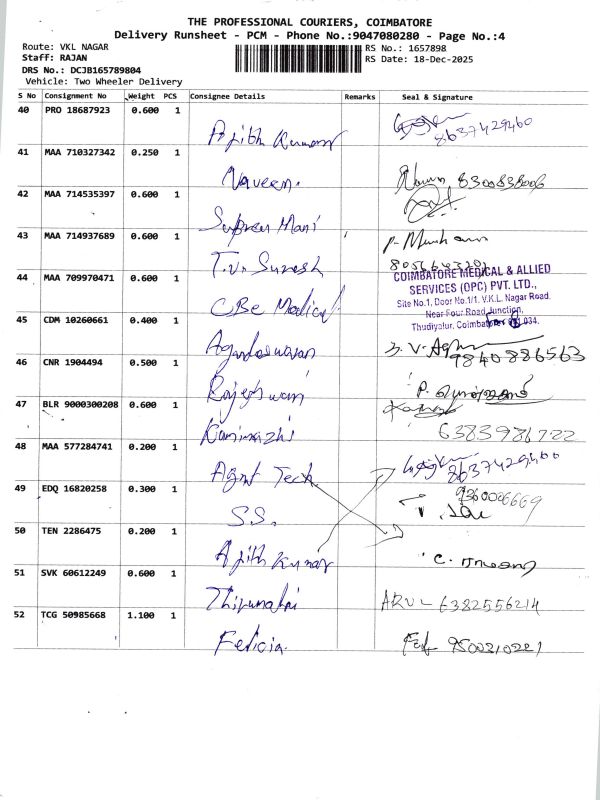 THE PROFESSIONAL COURIERS, COIMBATORE
Delivery Runsheet - PCM - Phone No.:9047080280 - Page No.:4
Route: VKL NAGAR
Staff: RAJAN
DRS No.: DCJB165789804
Vehicle: Two Wheeler Delivery
RS No.: 1657898
RS Date: 18-Dec-2025
S No Consignment No Weight PCS Consignee Details Remarks Seal & Signature
40 PRO 18687923 0.600 1
Ajith Kumar 8637429460
41 MAA 710327342 0.250 1
Naveen. 8300838006
42 MAA 714535397 0.600 1
Mani
43 MAA 714937689 0.600 1
T.V. Suresh P.
44 MAA 709970471 0.600 1
CBe Medical.
COIMBATORE MEDICAL & ALLIED
SERVICES (OPC) PVT. LTD.,
Site No.1, Door No.1/1, V.K.L. Nagar Road,
Near Four Road Junction,
Thudiyalur, Coimbatore 034.
45 CDM 10260661 0.400 1
9840886563
46 CNR 1904494 0.500 1
Rajeshwari P.
47 BLR 9000300208 0.600 1
Kanimozhi 6383986722
48 MAA 577284741 0.200 1
Agnt Tech 8637429460
49 EDQ 16820258 0.300 1
S.S. 9360006669
50 TEN 2286475 0.200 1
Ajith Kumar C.
51 SVK 60612249 0.600 1
Thirumalai ARUL 6382556214
52 TCG 50985668 1.100 1
Felicia. Fel 9500210221